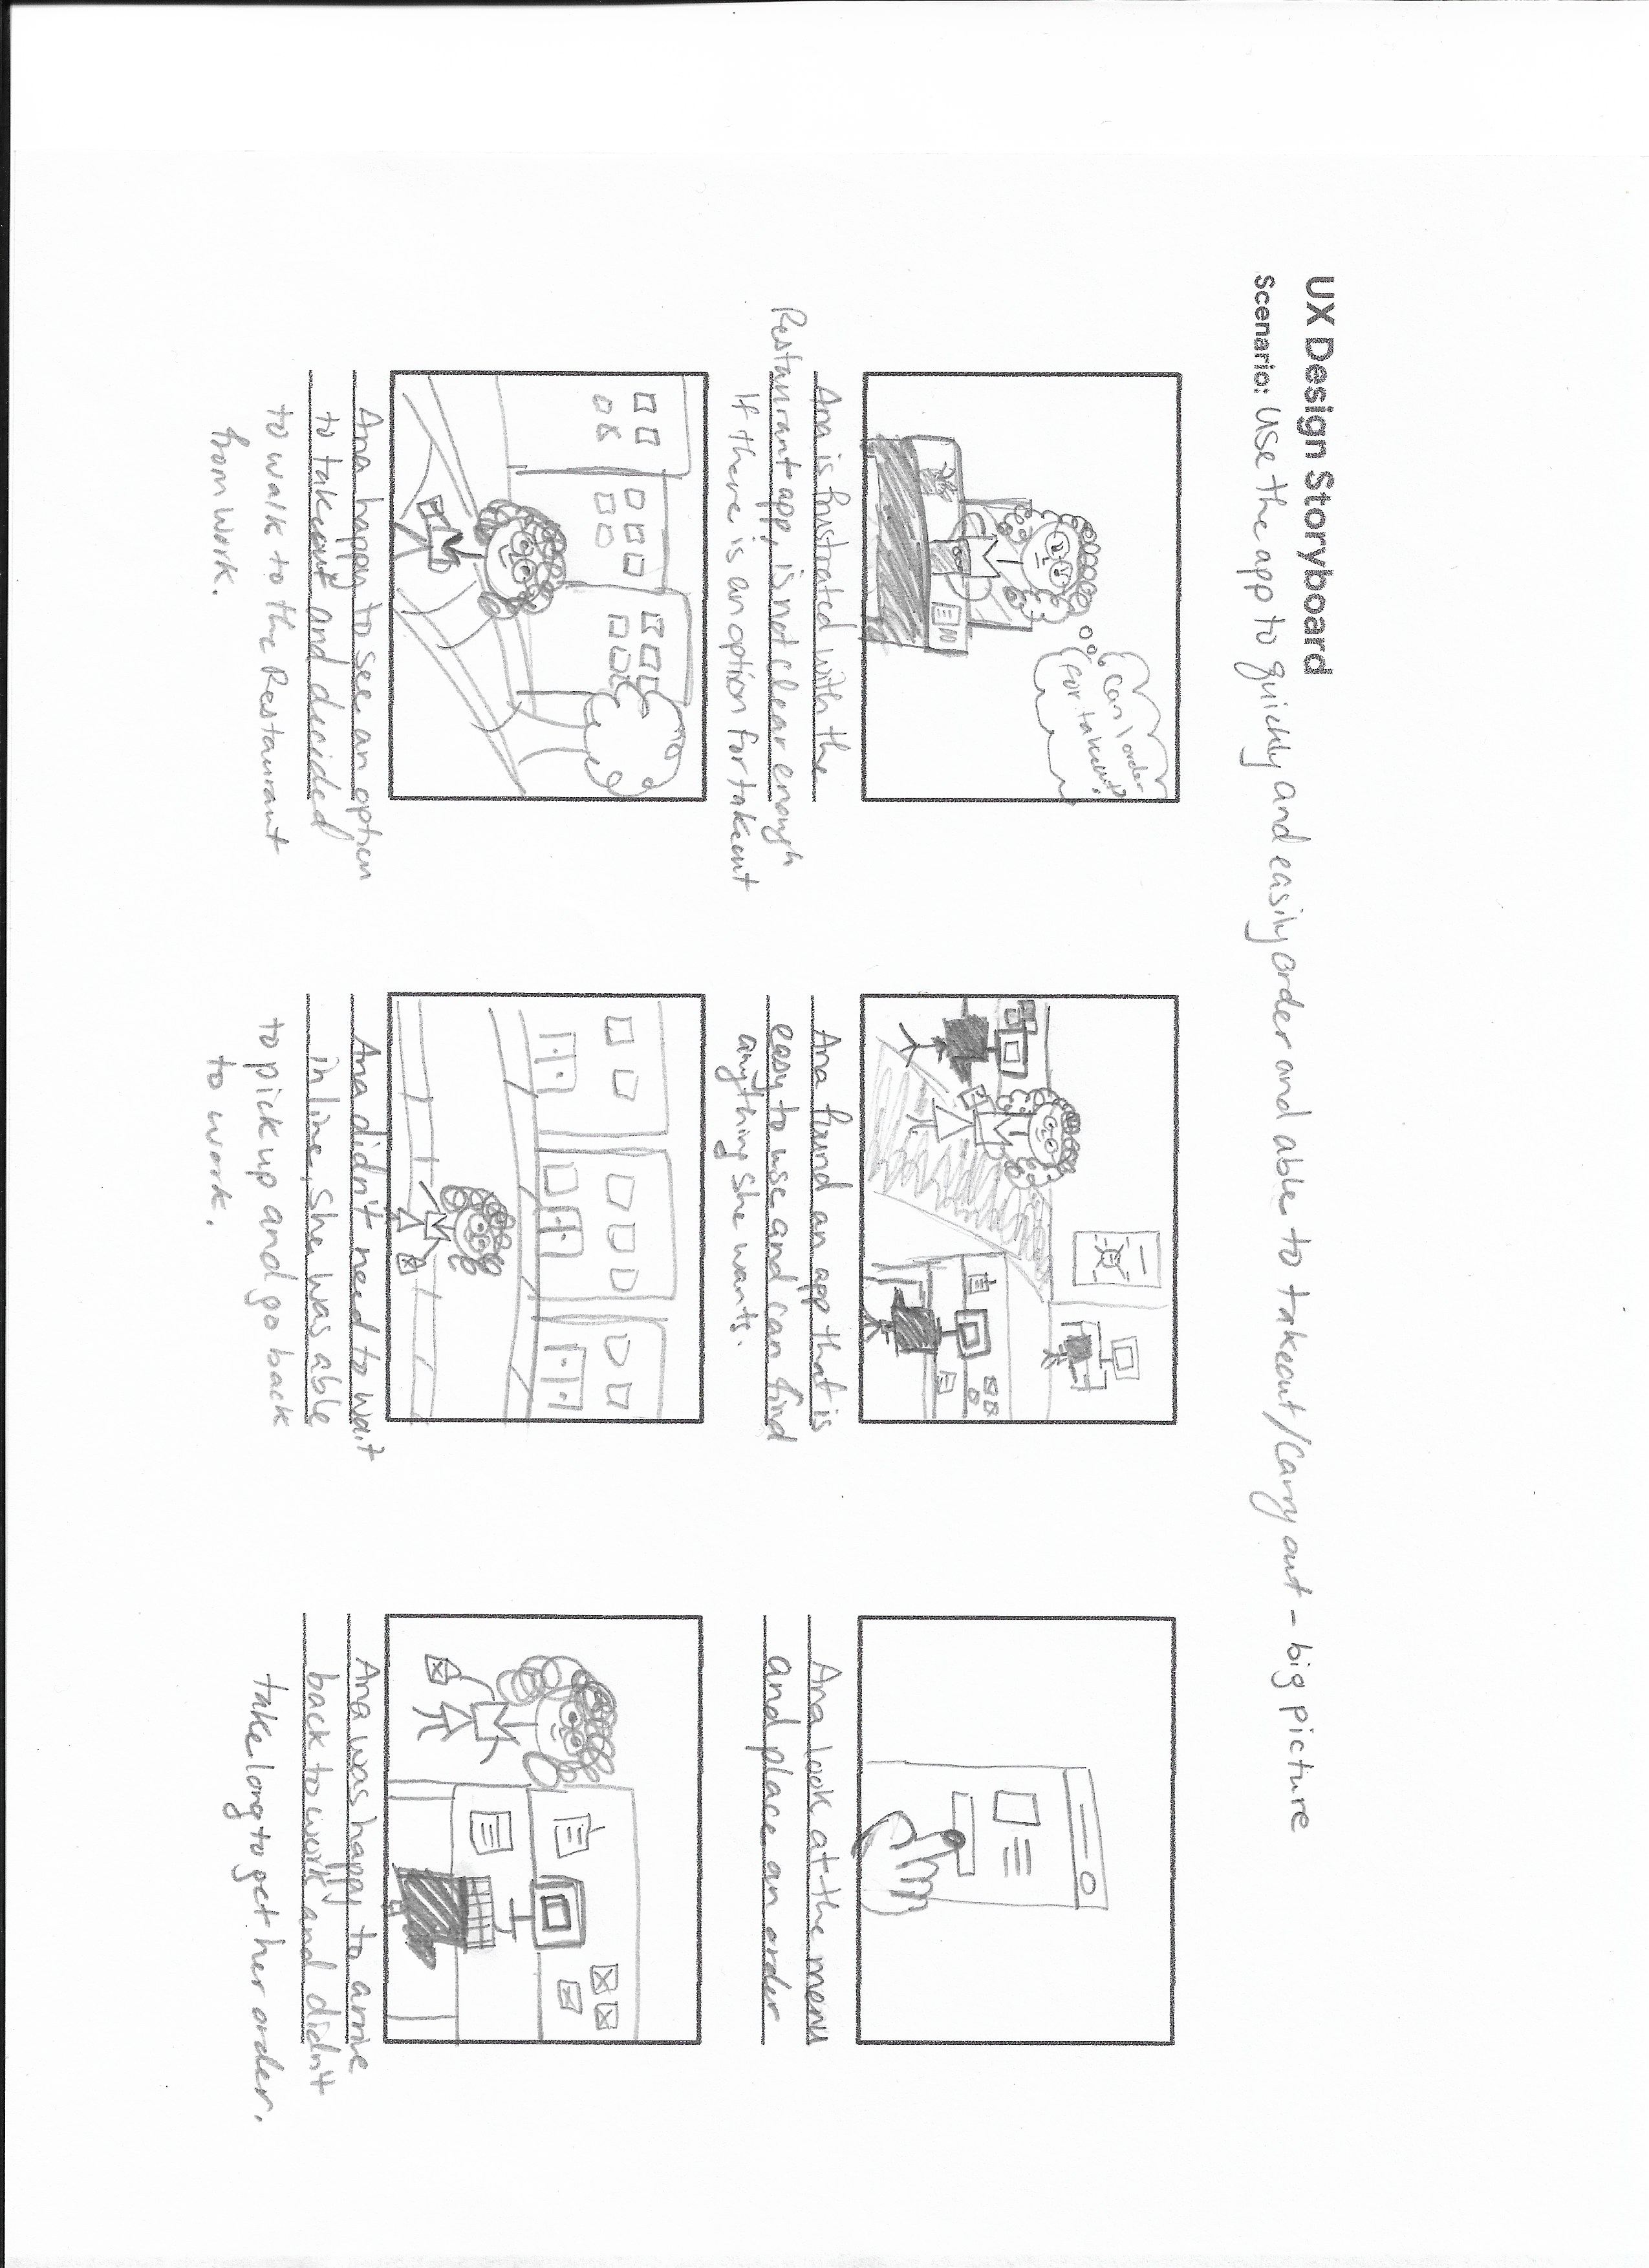 UX Design Storyboard
Scenario: Use the app to quickly and easily order and able to takeout/Carry out - big picture
Can I order
for takeout?
Ana is frustrated with the
Restaurant app, is not clear enough
If there is an option for takeout
Ana found an app that is
easy to use and can find
anything she wants.
Ana look at the menu
and place an order
Ana happy to see an option
to takeout and decided
to walk to the Restaurant
from work.
Ana didn't need to wait
in line, she was able
to pick up and go back
to work.
Ana was happy to arrive
back to work and didn't
take long to get her order.